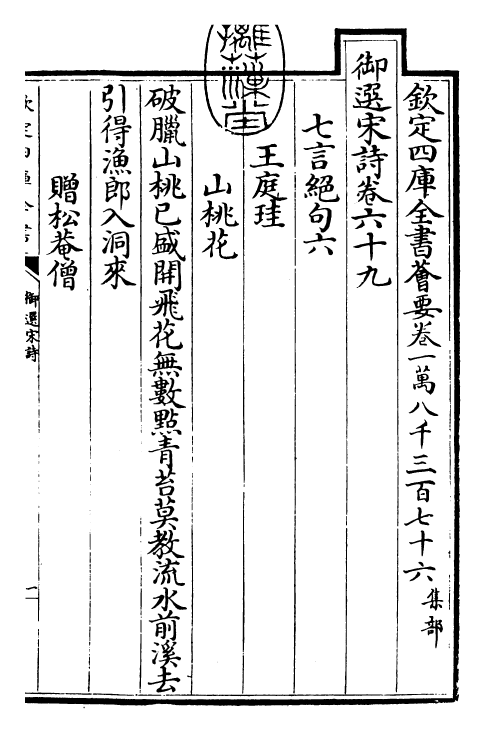 欽定四庫全書薈要卷一萬八千三百七十六 集部
御選宋詩卷六十九
七言絕句六
王庭珪
山桃花
破臘山桃已盛開飛花無數點青苔莫教流水前溪去
引得漁郎入洞來
贈松菴僧
御選宋詩
一